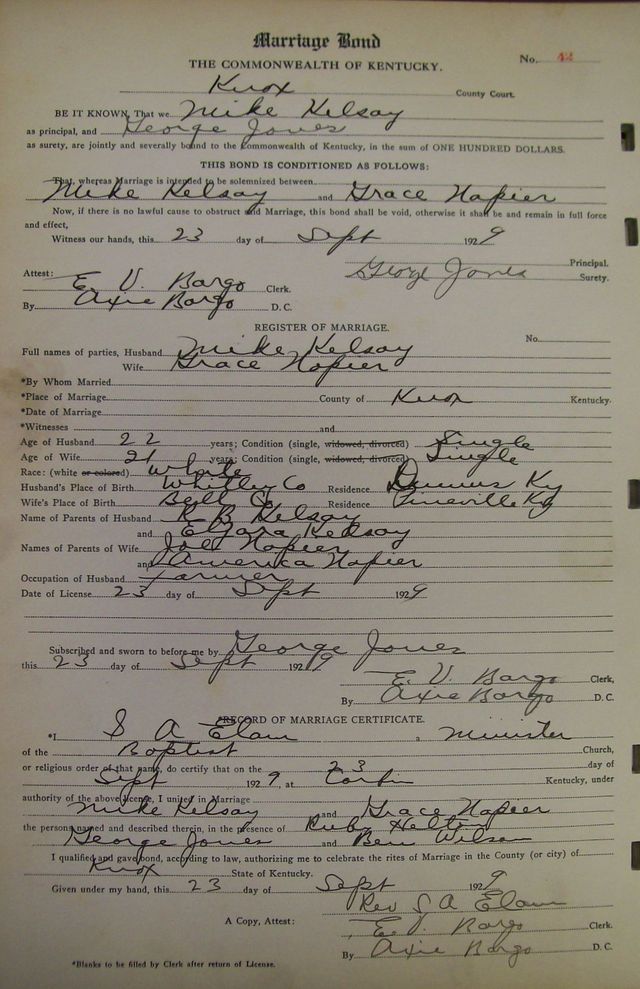 Marriage Bond
THE COMMONWEALTH OF KENTUCKY.
No. 42
Knox County Court.
BE IT KNOWN, That we Mike Kelsay
as principal, and George Jones
as surety, are jointly and severally bound to the Commonwealth of Kentucky, in the sum of ONE HUNDRED DOLLARS.
THIS BOND IS CONDITIONED AS FOLLOWS:
That, whereas Marriage is intended to be solemnized between
Mike Kelsay and Grace Napier
Now, if there is no lawful cause to obstruct said Marriage, this bond shall be void, otherwise it shall be and remain in full force
and effect,
Witness our hands, this 23 day of Sept 1929
Principal.
George Jones Surety.
Attest: E. V. Bargo Clerk.
By Axie Bargo D. C.
REGISTER OF MARRIAGE.
No.
Full names of parties, Husband Mike Kelsay
Wife Grace Napier
*By Whom Married
*Place of Marriage County of Knox Kentucky.
*Date of Marriage
*Witnesses and
Age of Husband 22 years; Condition (single, widowed, divorced) Single
Age of Wife 21 years; Condition (single, widowed, divorced) Single
Race: (white or colored) White
Husband's Place of Birth Whitley Co Residence Ky
Wife's Place of Birth Bell Co Residence Pineville Ky
Name of Parents of Husband R B Kelsay
and Kelsay
Names of Parents of Wife Joe Napier
and America Napier
Occupation of Husband Farmer
Date of License 23 day of Sept 1929
Subscribed and sworn to before me by George Jones
this 23 day of Sept 1929
E. V. Bargo Clerk,
By Axie Bargo D. C.
*RECORD OF MARRIAGE CERTIFICATE.
*I S A Elam a Minister
of the Baptist Church,
or religious order of that name, do certify that on the 23 day of
Sept 1929, at Corbin Kentucky, under
authority of the above license, I united in Marriage
Mike Kelsay and Grace Napier
the persons named and described therein, in the presence of Ruby
George Jones and Ben Wilson
I qualified and gave bond, according to law, authorizing me to celebrate the rites of Marriage in the County (or city) of
Knox State of Kentucky.
Given under my hand, this 23 day of Sept 1929
Rev S A Elam
A Copy, Attest: E. V. Bargo Clerk.
By Axie Bargo D. C.
*Blanks to be filled by Clerk after return of License.